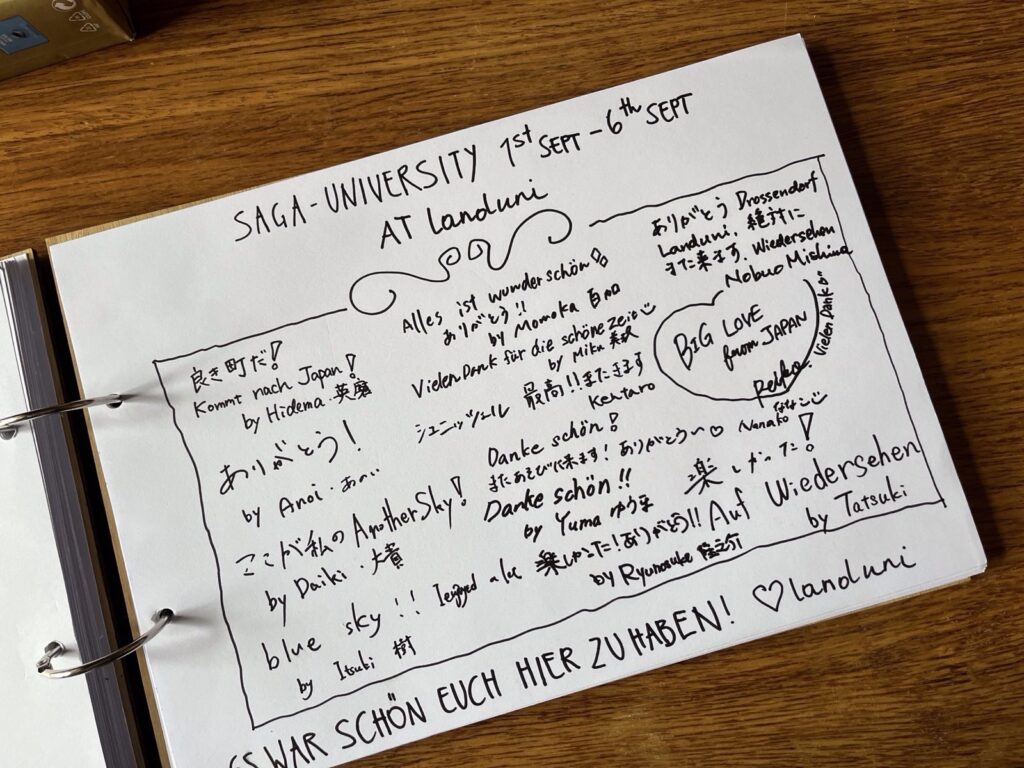 SAGA-UNIVERSITY 1st SEPT - 6th SEPT
AT Landuni
良き町だ!
Kommt nach Japan!
by Hidema・英磨
ありがとう!
by Anoi・あのい
ここが私のAnotherSky!
by Daiki・大貴
blue sky!!
by Itsuki 樹
Alles ist wunderschön
ありがとう!!
by Momoka 百加
Vielen Dank für die schöne Zeit
by Miku
シュニッツェル 最高!!またきます
Kentaro
Danke schön!
またあそびに来ます!ありがとう〜♡ Nanako ななこ
Danke schön!!
by Yuma ゆうま
I enjoyed a lot 楽しかった!ありがとう!!
by Ryunosuke 隆之介
ありがとう Drossendorf
Landuni, 絶対に
また来ます. Wiedersehen
Nobuo Mishima
BIG LOVE
from JAPAN
Reiko
Vielen Dank
楽しかった!
Auf Wiedersehen
by Tatsuki
ES WAR SCHÖN EUCH HIER ZU HABEN! ♡landuni